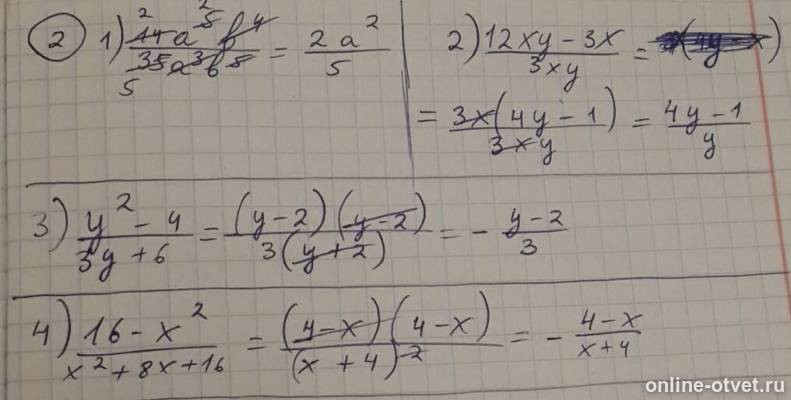 ② 1) 14a⁵b⁴ / 35a³b⁵ = 2a² / 5
2) (12xy - 3x) / 3xy =
= 3x(4y - 1) / 3xy = (4y - 1) / y
3) (y² - 4) / (3y + 6) = (y - 2)(y - 2) / 3(y + 2) = - (y - 2) / 3
4) (16 - x²) / (x² + 8x + 16) = (4 - x)(4 - x) / (x + 4)² = - (4 - x) / (x + 4)
online-otvet.ru